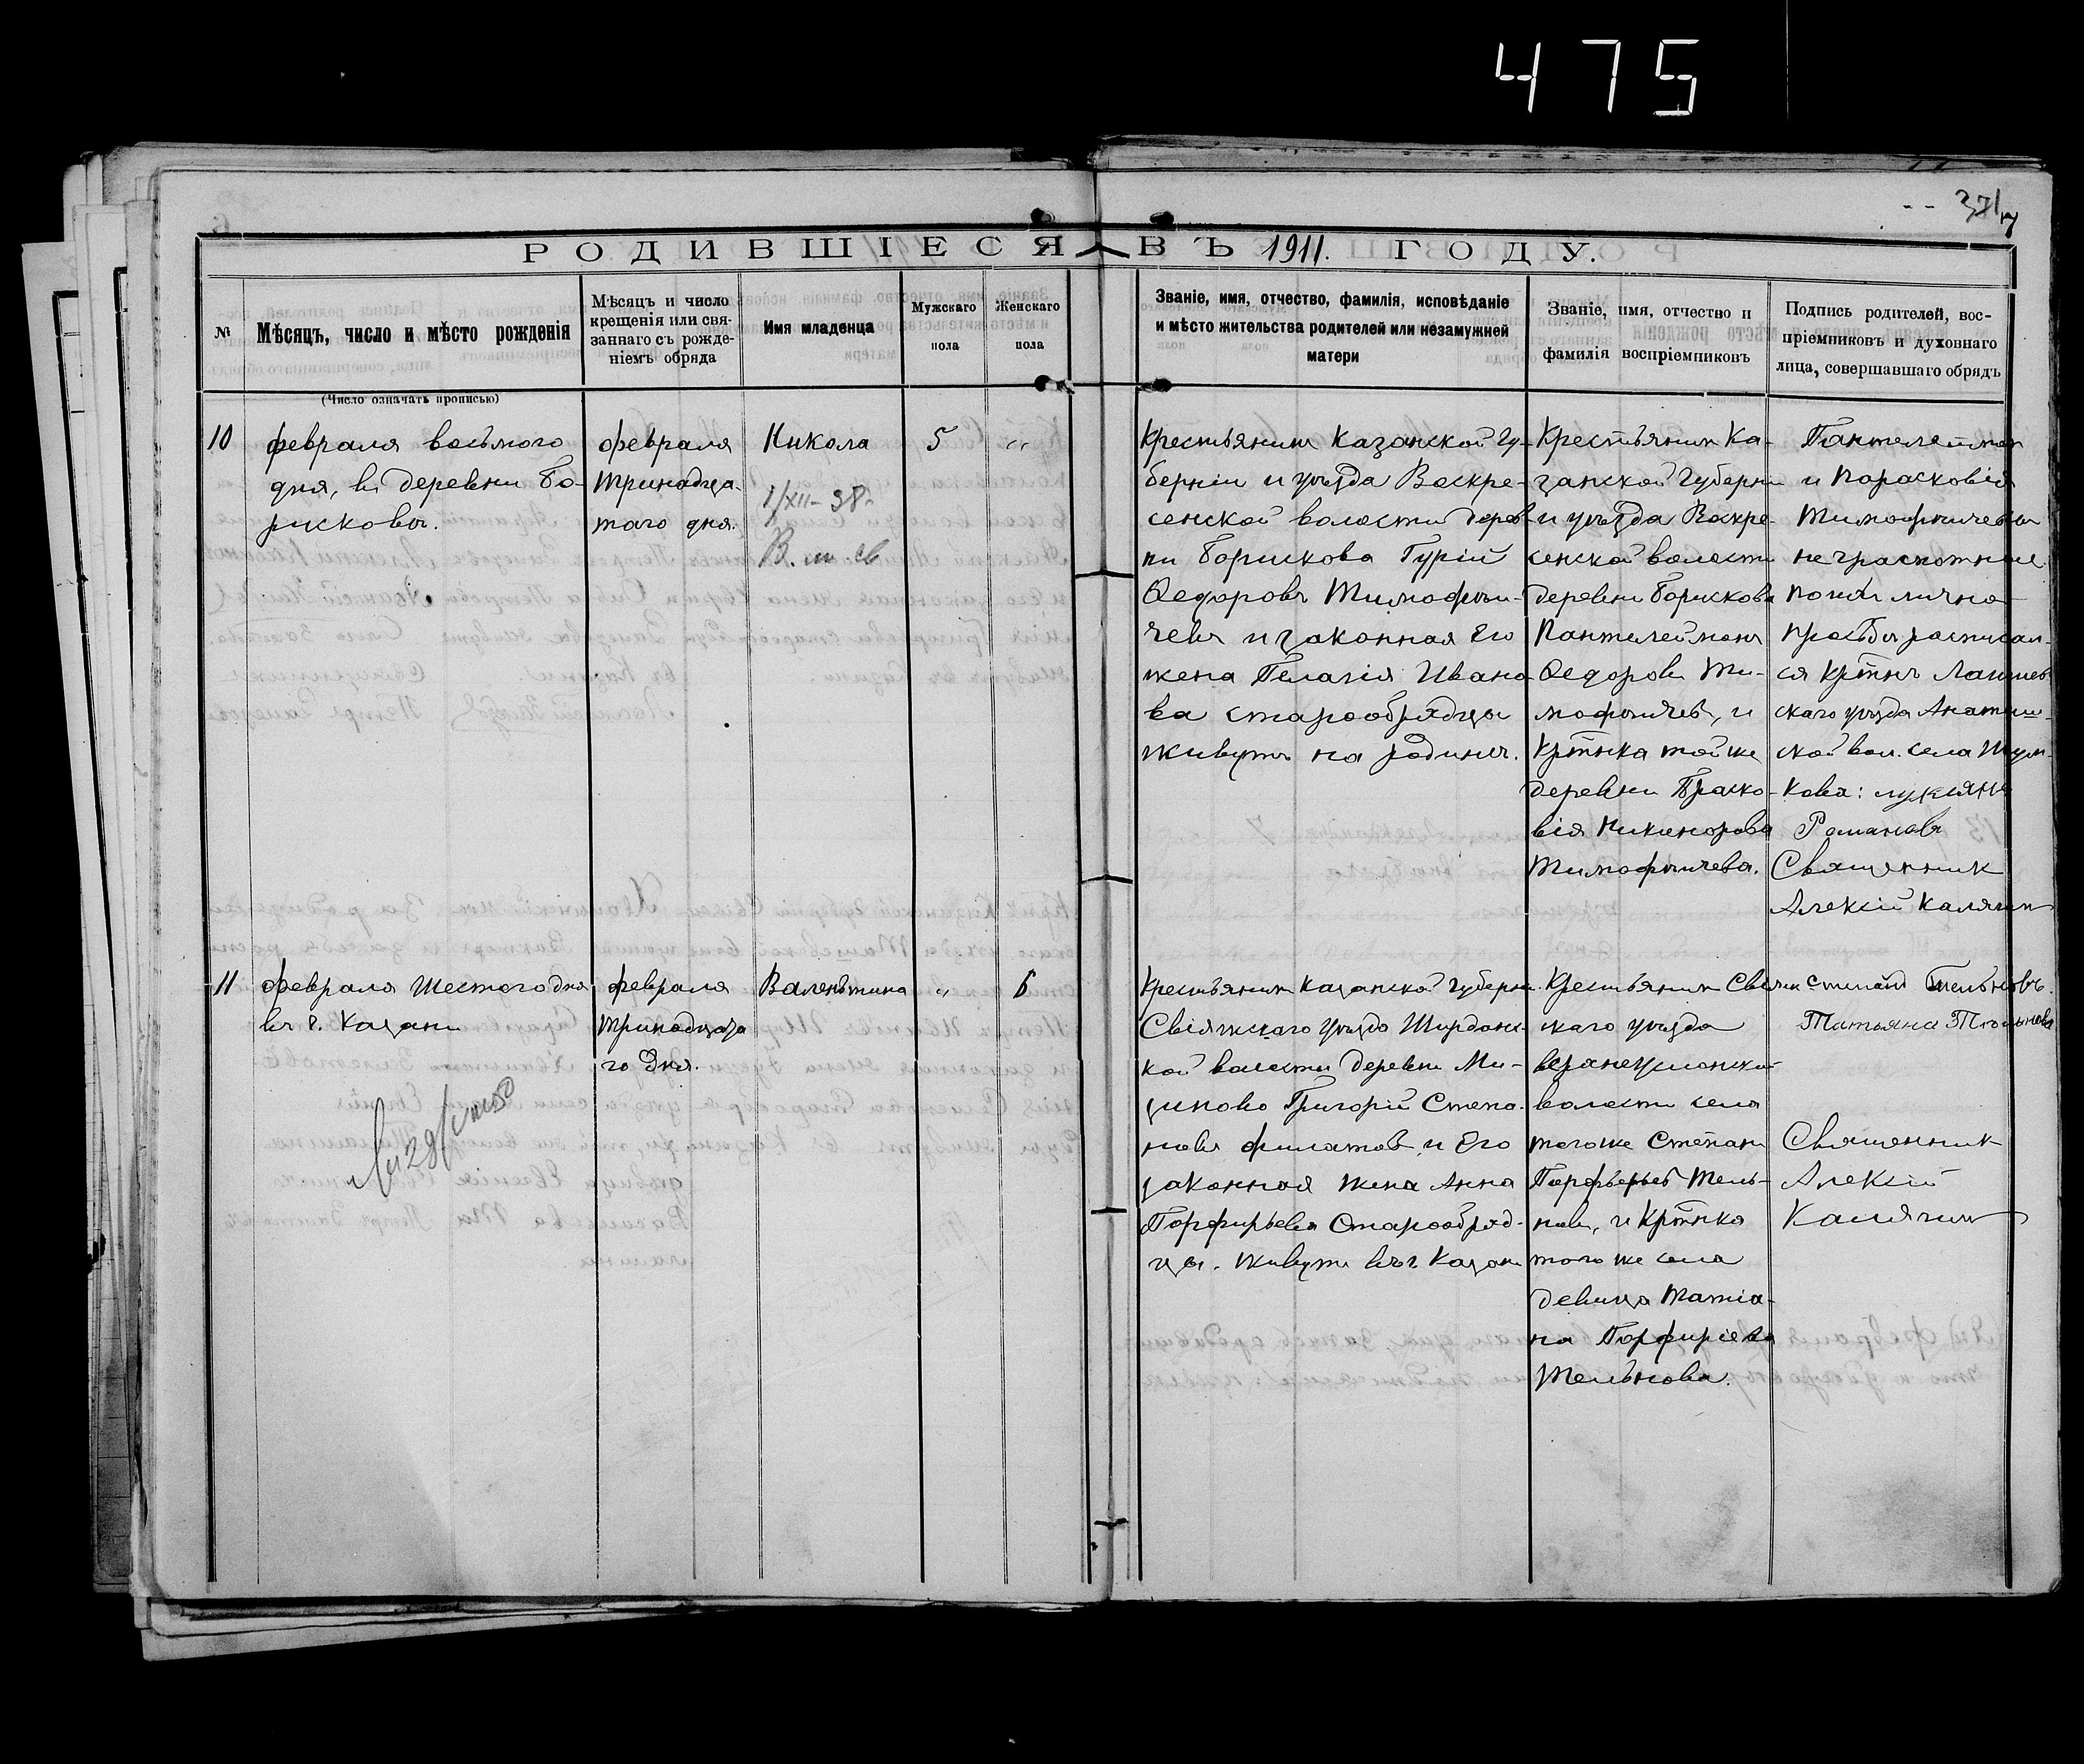 475
371/17
РОДИВШІЕСЯ ВЪ 1911. ГОДУ.
№
Мѣсяцъ, число и мѣсто рожденія
Мѣсяцъ и число
крещенія или свя-
заннаго съ рожде-
ніемъ обряда
Имя младенца
Мужскаго
пола
Женскаго
пола
Званіе, имя, отчество, фамилія, исповѣданіе
и мѣсто жительства родителей или незамужней
матери
Званіе, имя, отчество и
фамилія воспріемниковъ
Подпись родителей, вос-
пріемниковъ и духовнаго
лица, совершавшаго обрядъ
(Число означать прописью)
10
февраля восьмого
дня, въ деревни Бо-
рисковы.
февраля
тринадца-
таго дня.
Никола
1/XII-38г
В. ш. св
5
"
Крестьянинъ Казанской Гу-
берніи и уѣзда Воскре-
сенской волости дерев-
ни Борискова Гурій
Ѳедоровъ Тимофеи-
чевъ и законная Его
жена Пелагія Ивано
ва старообрядцы
живутъ на родинѣ.
Крестьянин Ка-
занской Губерни
и уѣзда Воскре-
сенской волости
деревни Борискова
Пантилеймонъ
Ѳедоровъ Ти-
мофеичевъ, и
Крт҃нка той же
деревни Праско-
вія Никинорова
Тимофеичева.
Пантелеймон
и Парасковія
Тимофеичевы
неграмотные
по их лично
прозьбы расписал-
ся Крт҃нъ Лаишев
скаго уѣзда
вол. села
кова: лукиянъ
Романовъ
Священник
Алексій Калягин
11
февраля Шестого дня
въ г. Казани
февраля
тринадцата
го Дня.
Валенътина
"
6
Крестьянин Казанской Губерни
Свіяжскаго Уѣзда Ширданс-
кой волости деревни Ми-
зиново Григорій Степа-
новъ филатов и Его
законная жена Анна
Порфирьева Старообряд-
цы. живутъ въ г Казани
Крестьянин Свіяж
скаго уѣзда
волости села
тогоже Степанъ
Порферьев Тель-
новъ, и Крт҃нка
того же села
девица Татіа-
на Порфиріева
Тельнова.
Степанъ Тельновъ.
Татьяна Тельнова
Священник
Алексій
Калягин